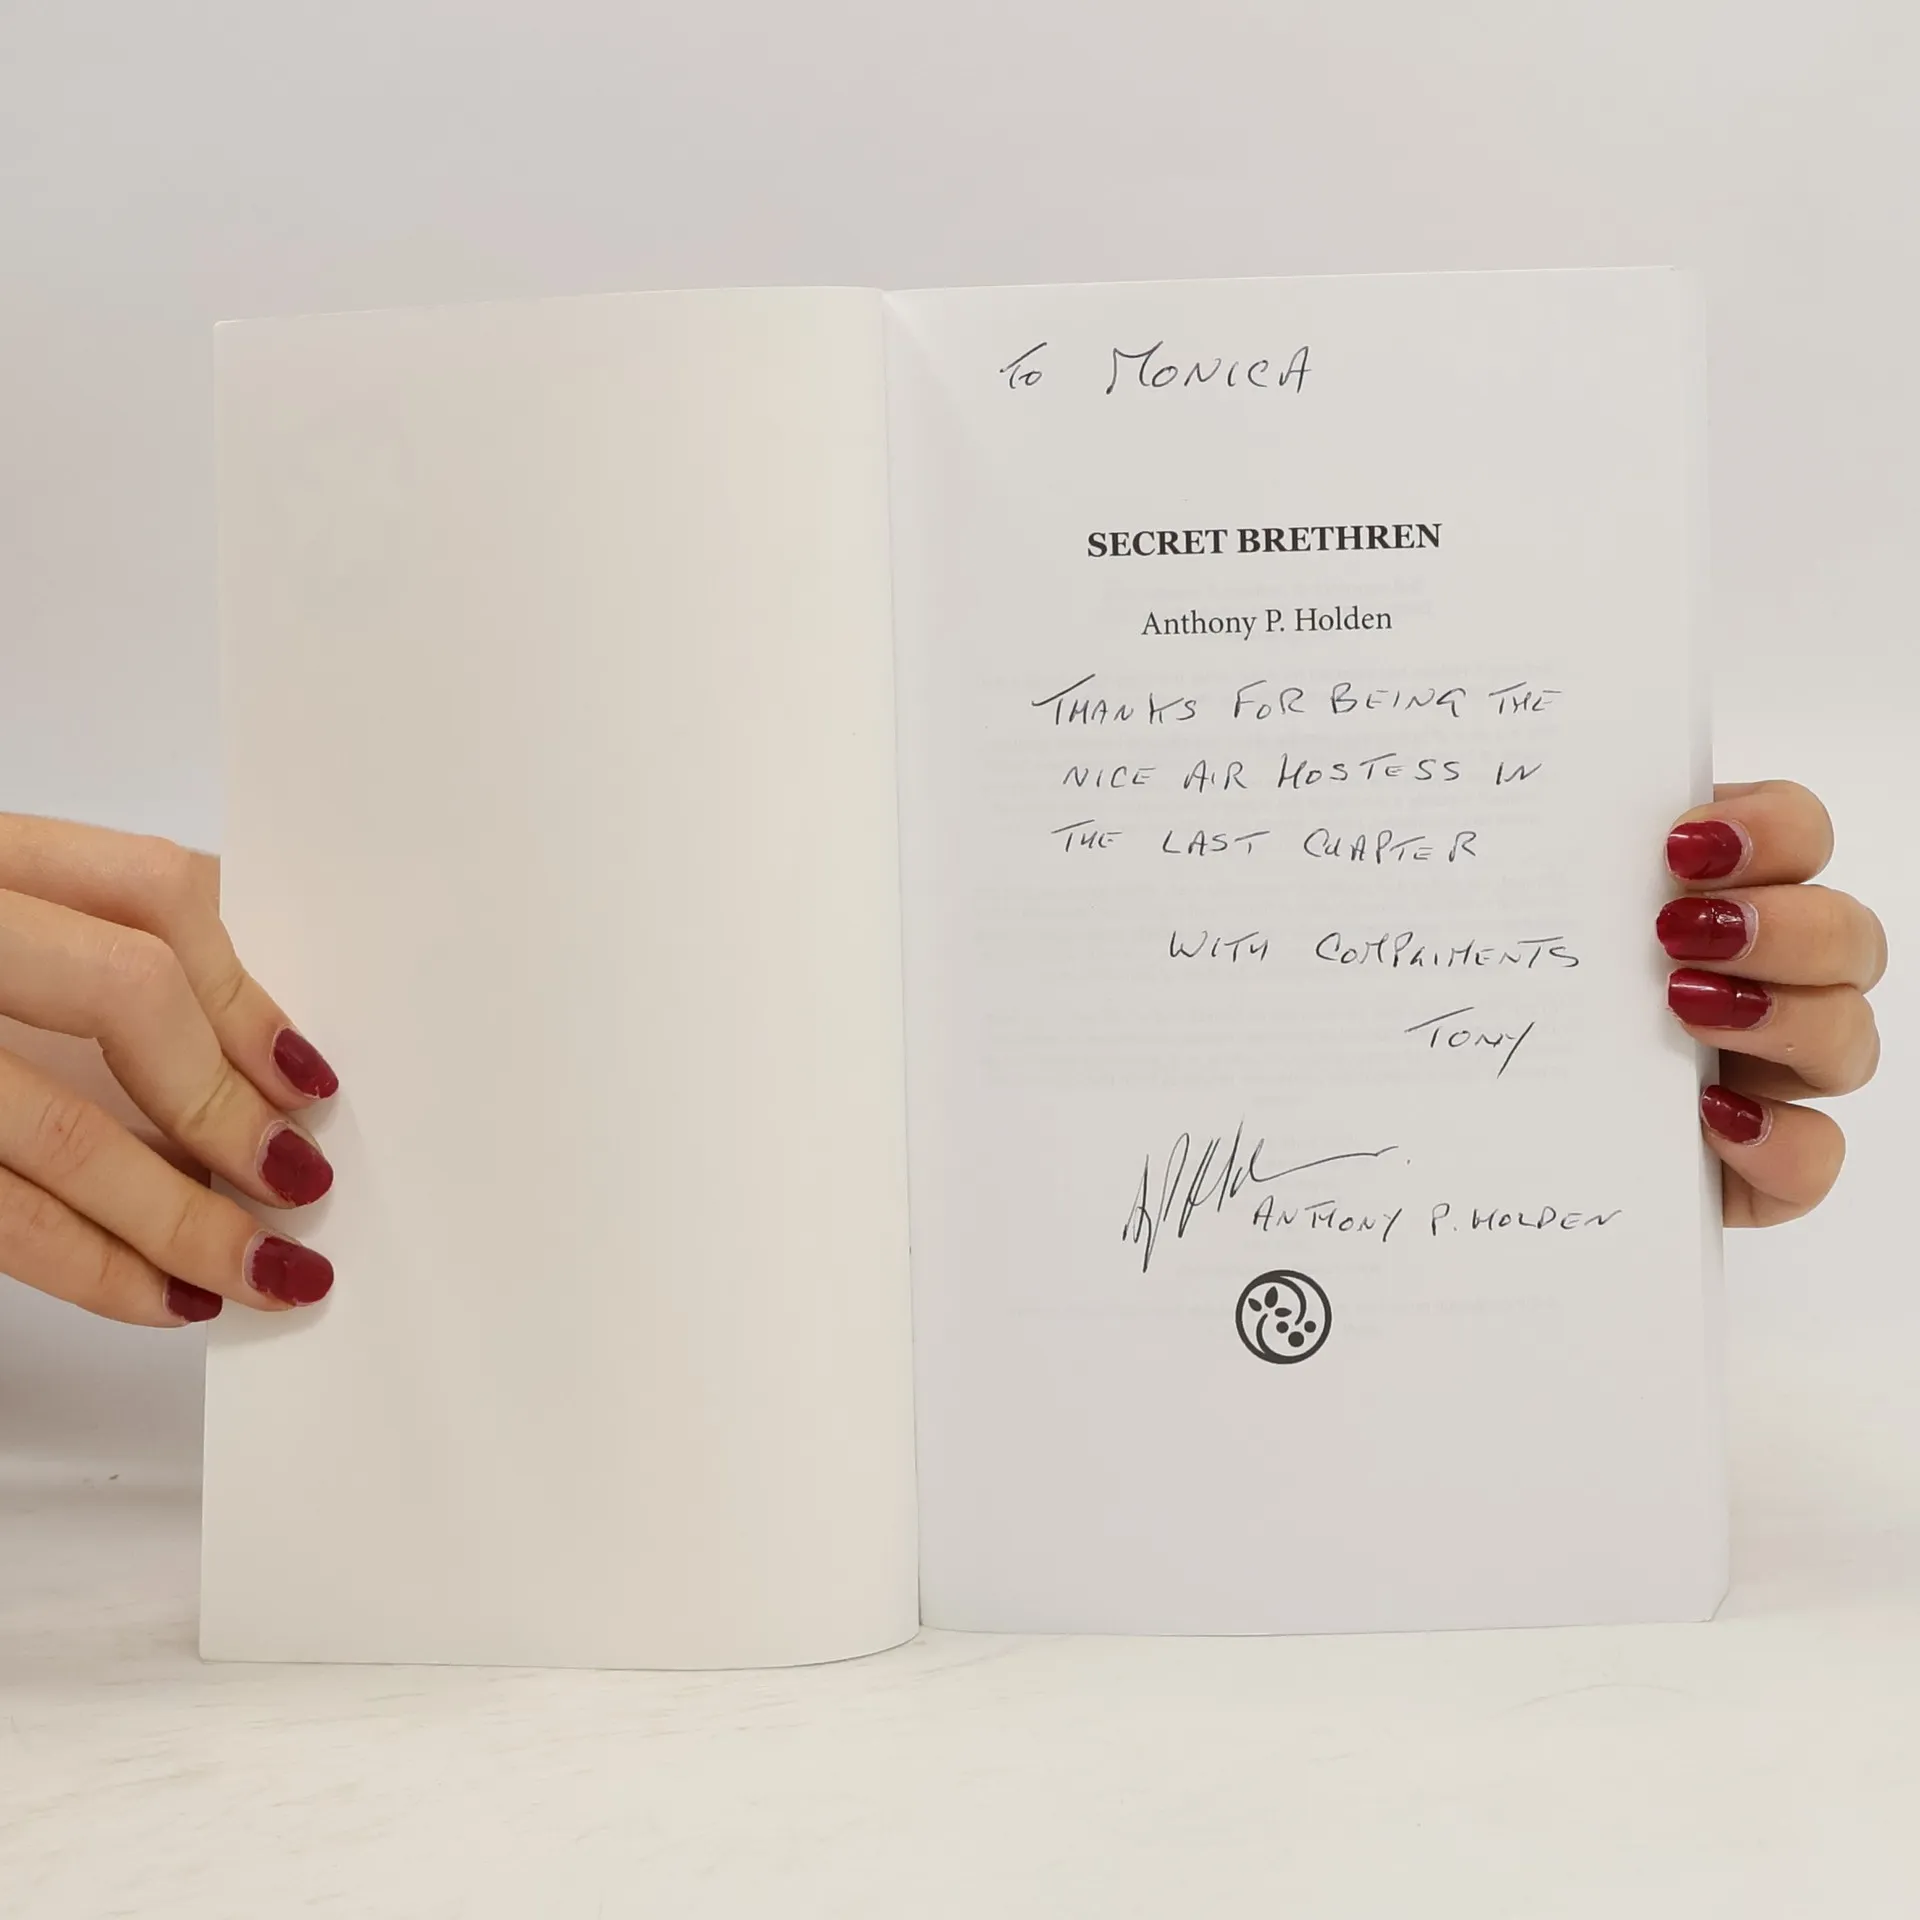 TO MONICA
SECRET BRETHREN
Anthony P. Holden
THANKS FOR BEING THE
NICE AIR HOSTESS IN
THE LAST CHAPTER
WITH COMPLIMENTS
TONY
AP Hold
ANTHONY P. HOLDEN